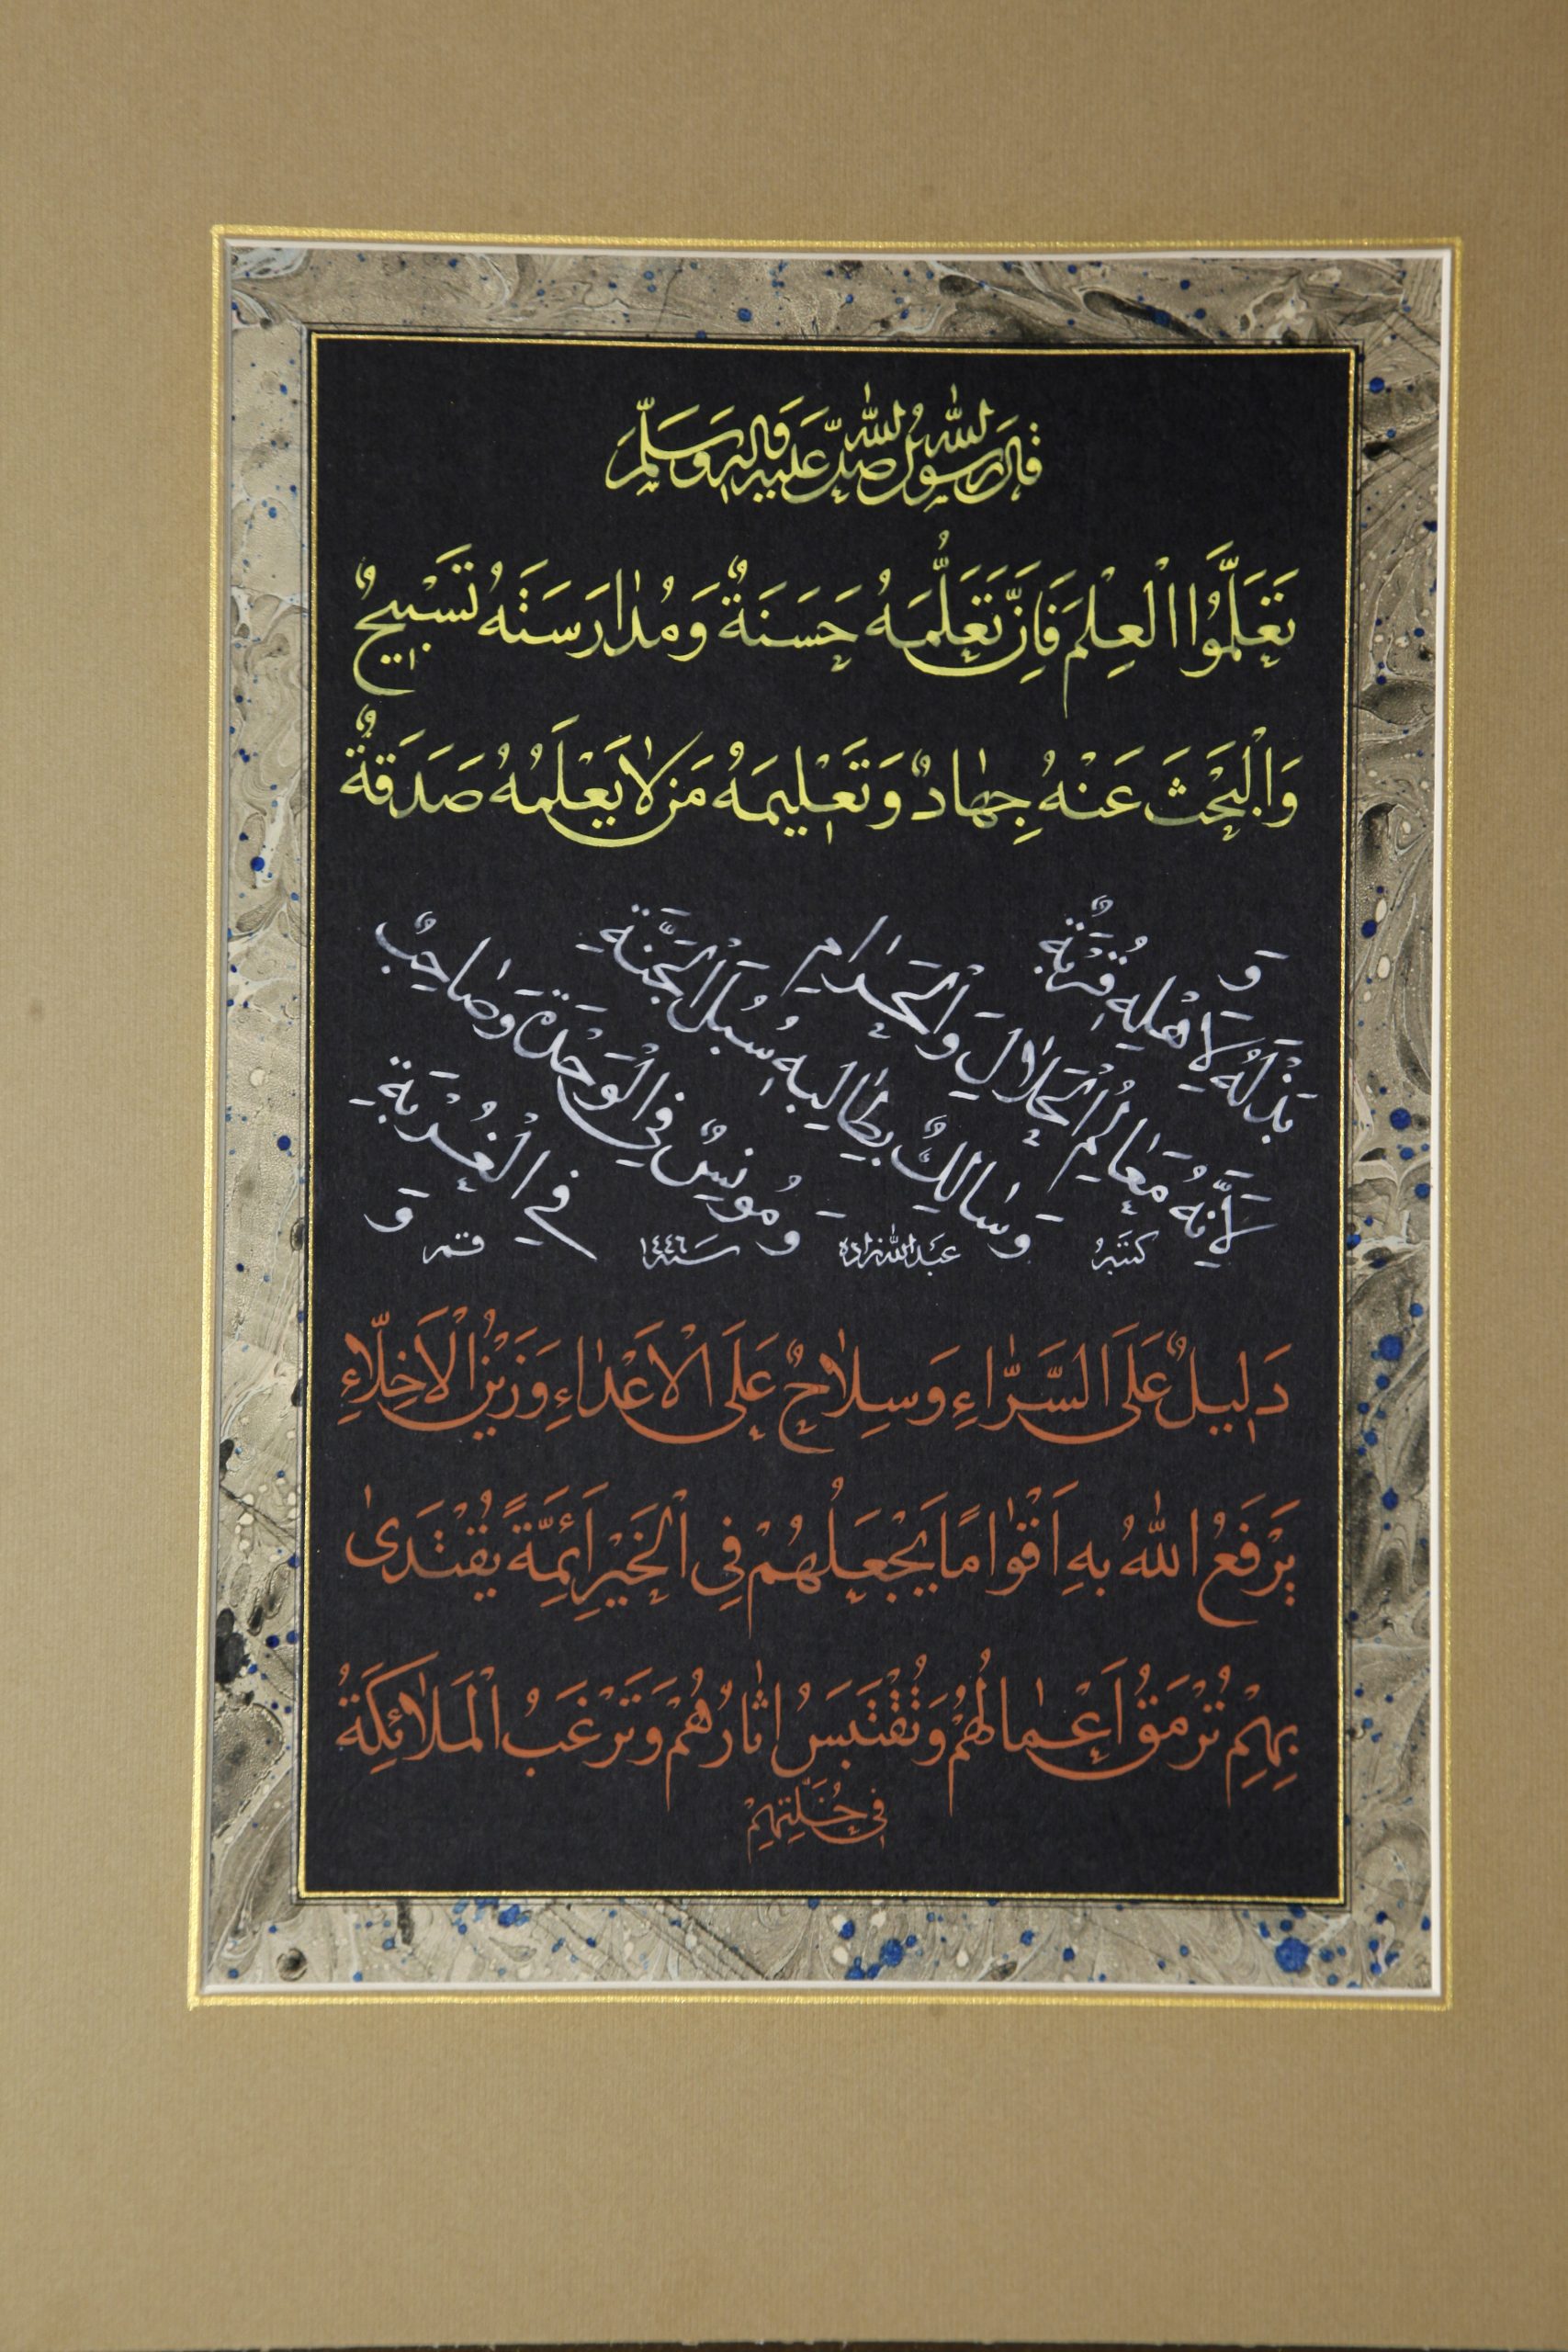 قَالَ رَسُولُ اللّٰهِ صَلَّى اللّٰهُ عَلَيْهِ وَآلِهِ وَسَلَّمَ
تَعَلَّمُوا الْعِلْمَ فَاِنَّ تَعَلُّمَهُ حَسَنَةٌ وَ مُدٰارَسَتَهُ تَسْبِيحٌ
وَالْبَحْثَ عَنْهُ جِهٰادٌ وَ تَعْلِيمَهُ مَنْ لٰا يَعْلَمُهُ صَدَقَةٌ
وَ
بَذْلَهُ لِاَهْلِهِ قُرْبَةٌ
لِاَنَّهُ مَعٰالِمُ الْحَلٰالِ وَالْحَرٰامِ
وَ سٰالِكٌ بِطٰالِبِهِ سُبُلَ الْجَنَّةِ
وَ مُونِسٌ فِي الْوَحْدَةِ وَ صٰاحِبٌ
فِي الْغُرْبَةِ
وَ
كتبه عبدالله زاده سنة ١٤٤٦ قم
دَلِيلٌ عَلَى السَّرّٰاءِ وَ سِلٰاحٌ عَلَى الْاَعْدٰاءِ وَ زَيْنُ الْاَخِلّٰاءِ
يَرْفَعُ اللّٰهُ بِهِ اَقْوٰامًا يَجْعَلُهُمْ فِي الْخَيْرِ اَئِمَّةً يُقْتَدىٰ
بِهِمْ تُرْمَقُ اَعْمٰالُهُمْ وَ تُقْتَبَسُ اٰثٰارُهُمْ وَ تَرْغَبُ الْمَلٰائِكَةُ
فِي خُلَّتِهِمْ